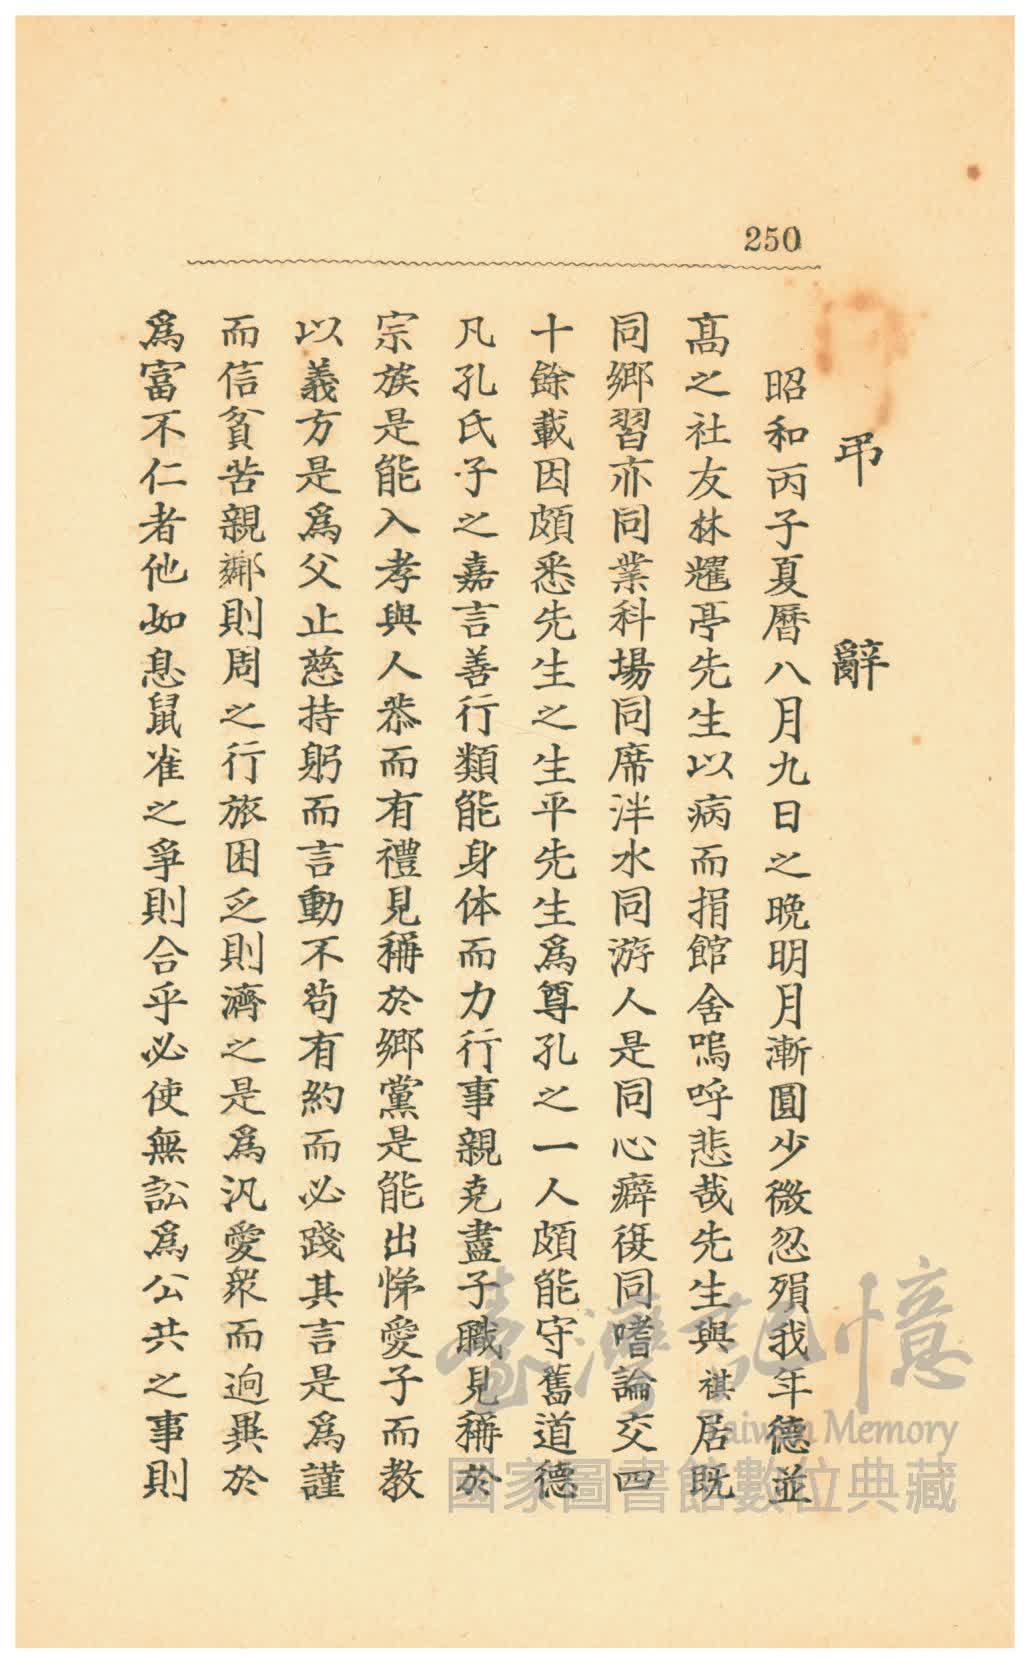 250
弔辭
昭和丙子夏曆八月九日之晩明月漸圓少微忽殞我年德並
高之社友林耀亭先生以病而捐館舍嗚呼悲哉先生與祺居既
同鄉習亦同業科場同席泮水同游人是同心癖復同嗜論交四
十餘載因頗悉先生之生平先生爲尊孔之一人頗能守舊道德
凡孔氏子之嘉言善行類能身体而力行事親克盡子職見稱於
宗族是能入孝與人恭而有禮見稱於鄉黨是能出悌愛子而教
以義方是爲父止慈持躬而言動不茍有約而必踐其言是爲謹
而信貧苦親鄰則周之行旅困乏則濟之是爲汎愛衆而逈異於
爲富不仁者他如息鼠雀之爭則合乎必使無訟爲公共之事則
臺灣記憶
Taiwan Memory
國家圖書館數位典藏